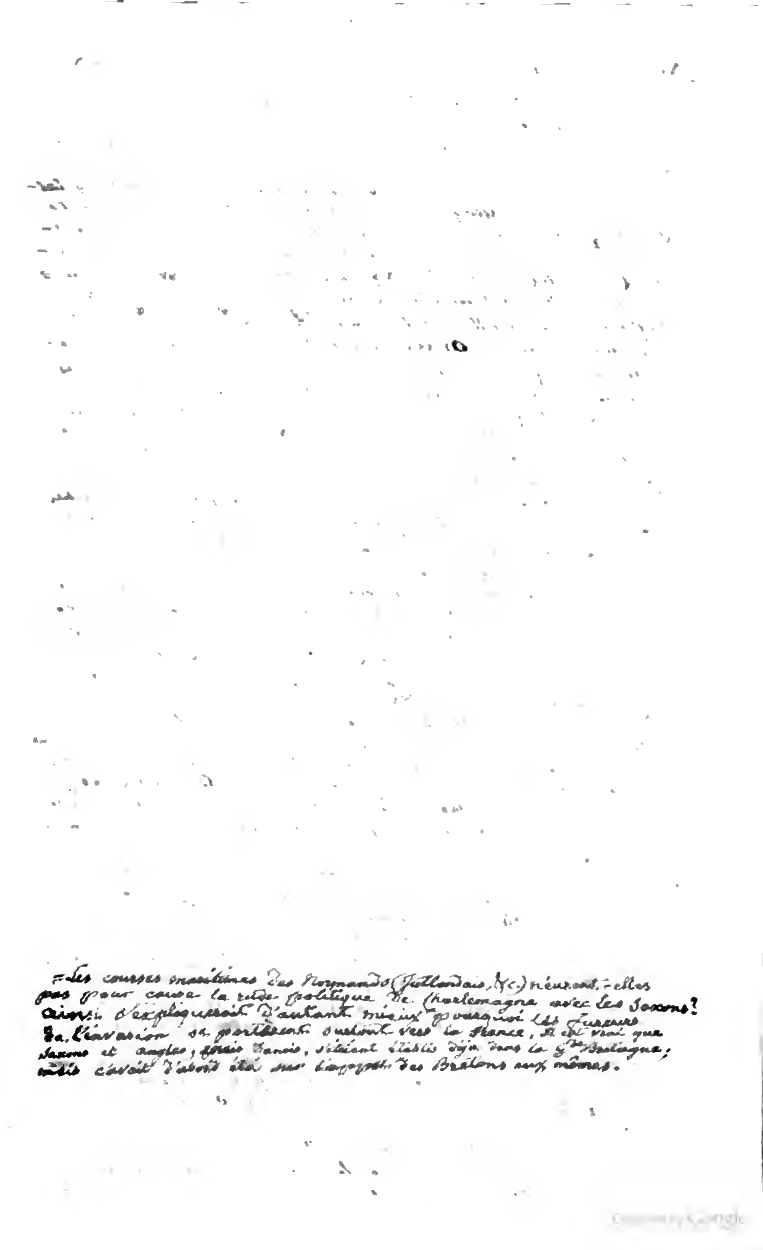 = Les courses maritimes des Normands (Jutlandais, &c.) n'eurent-elles
pas pour cause la rude politique de Charlemagne avec les Saxons?
ainsi s'expliqueroit d'autant mieux pourquoi les fureurs
de l'invasion se portèrent surtout vers la France, il est vrai que
Saxons et Angles, Danois, s'étaient établis déjà dans la Gde Bretagne;
mais c'avait d'abord été sur des Bretons eux mêmes.
Google